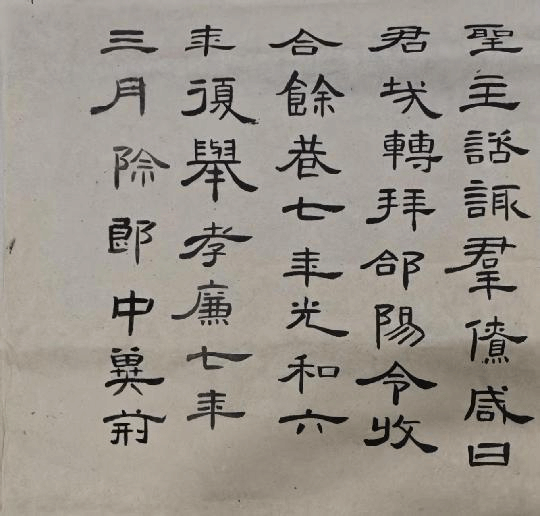 聖主諮諏羣僚咸曰
君哉轉拜郃陽令收
合餘巷七年光和六
年復舉孝廉七年
三月除郎中冀前